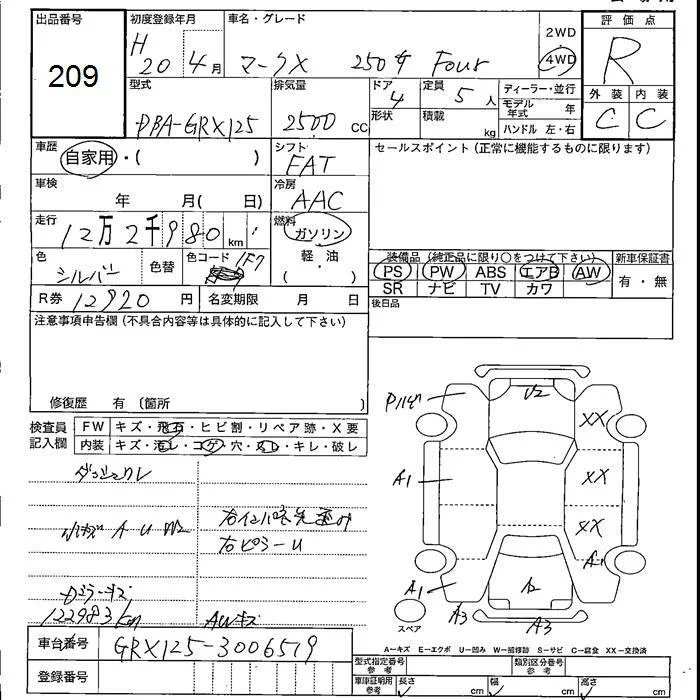 出品番号
209
初度登録年月
H 20 4月
車名・グレード
マークX 250G Four
2WD
4WD
評価点
R
外装 内装
C C
型式
DBA-GRX125
排気量
2500 CC
ドア
4
形状
定員
5人
積載
kg
ディーラー・並行
モデル年式 年
ハンドル 左・右
車歴
自家用・( )
シフト
FAT
セールスポイント(正常に機能するものに限ります)
車検
年 月( 日)
冷房
AAC
走行
12万2千980 km
燃料
ガソリン
軽・油
( )
色
シルバー
色替
色コード 1F7
装備品(純正品に限り○をつけて下さい)
PS PW ABS エアB AW
SR ナビ TV カワ
新車保証書
有・無
R券 12920円
名変期限 月 日
後日品
注意事項申告欄(不具合内容等は具体的に記入して下さい)
修復歴 有(箇所 )
検査員記入欄
FW キズ・飛石・ヒビ割・リペア跡・X要
内装 キズ・汚レ・コゲ・穴・スレ・キレ・破レ
A U W2
右ピラーU
122983km
AWキズ
U2
XX
A1
XX
XX
A1
A1
A3
A3
スペア
A-キズ E-エクボ U-凹み W-補修跡 S-サビ C-腐食 XX-交換済
車台番号
GRX125-3006579
登録番号
型式指定番号
参考
類別区分番号
参考
車庫証明用
参考
長さ cm
幅 cm
高さ cm